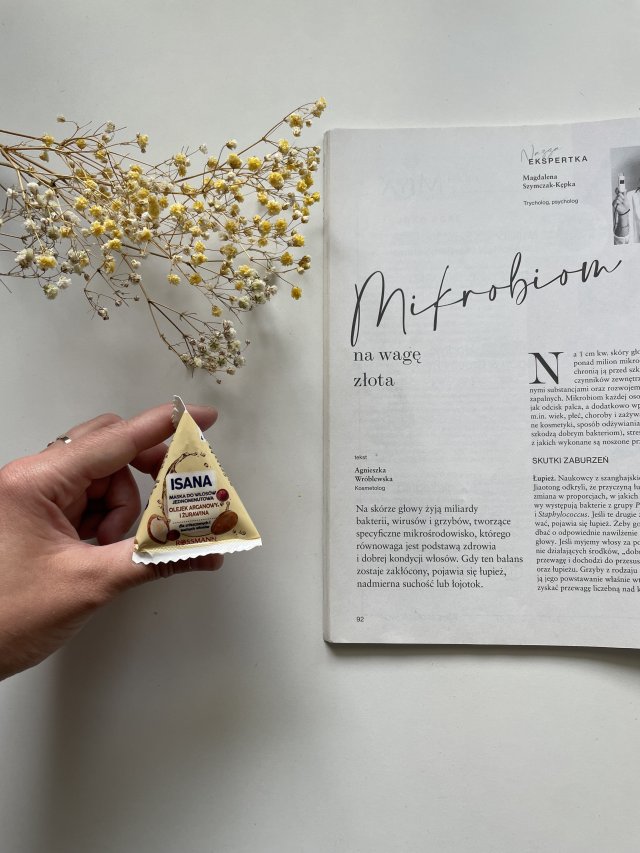 Nasza
EKSPERTKA
Magdalena
Szymczak-Kępka
Trycholog, psycholog
Mikrobiom
na wagę
złota
tekst
Agnieszka
Wróblewska
Kosmetolog
Na skórze głowy żyją miliardy
bakterii, wirusów i grzybów, tworzące
specyficzne mikrośrodowisko, którego
równowaga jest podstawą zdrowia
i dobrej kondycji włosów. Gdy ten balans
zostaje zakłócony, pojawia się łupież,
nadmierna suchość lub łojotok.
92
Na 1 cm kw. skóry gło
ponad milion mikro
chronią ją przed szk
czynników zewnętrz
nymi substancjami oraz rozwojem
zapalnych. Mikrobiom każdej oso
jak odcisk palca, a dodatkowo wp
m.in. wiek, płeć, choroby i zażyw
ne kosmetyki, sposób odżywiania
szkodzą dobrym bakteriom), stres
z jakich wykonane są noszone prz
SKUTKI ZABURZEŃ
Łupież. Naukowcy z szanghajskie
Jiaotong odkryli, że przyczyną łu
zmiana w proporcjach, w jakich
wy występują bakterie z grupy P
i Staphylococcus. Jeśli te drugie z
wać, pojawia się łupież. Żeby g
dbać o odpowiednie nawilżenie
głowy. Jeśli myjemy włosy za po
nie działających środków, „dobr
przewagę i dochodzi do przesus
oraz łupieżu. Grzyby z rodzaju
ją jego powstawanie właśnie wt
zyskać przewagę liczebną nad k
ISANA
MASKA DO WŁOSÓW
JEDNOMINUTOWA
OLEJEK ARGANOWY
I ŻURAWINA
ROSSMANN